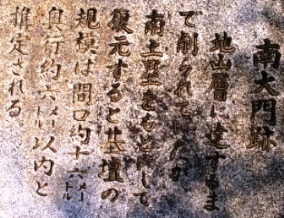 南大門跡
地山層に達するま
で削られていたが
南土壇をもとにして
復元すると基壇の
規模は間口約十六メートル
奥行約六メートル以内と
推定される